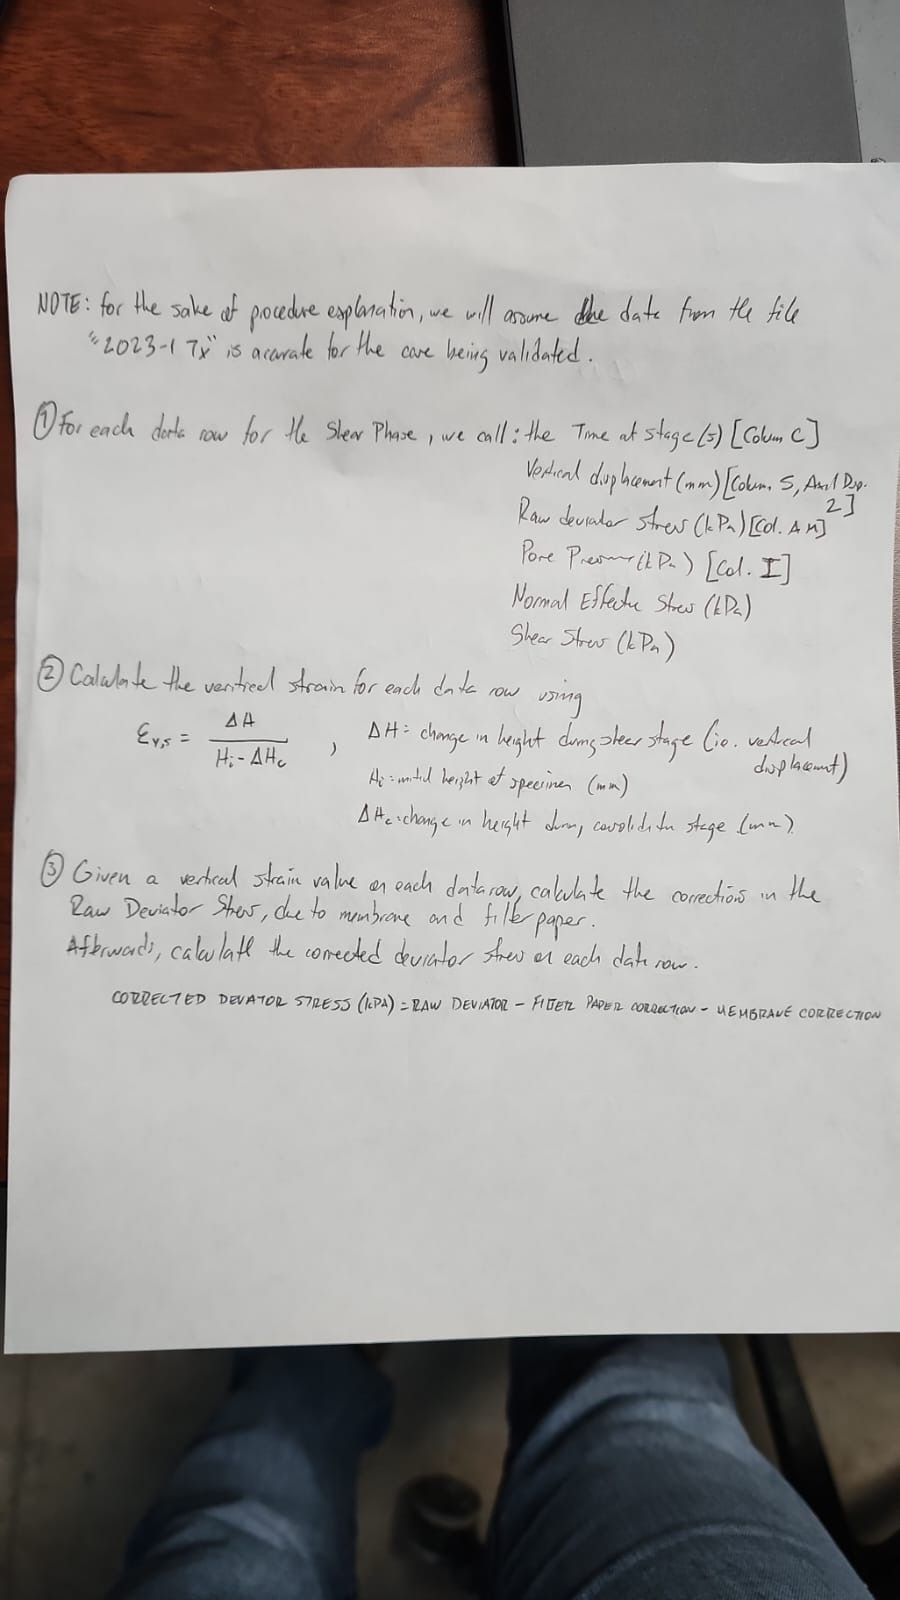 NOTE: for the sake of procedure explanation, we will assume the data from the file
"2023-1 Tx" is accurate for the core being validated.
① For each data row for the Shear Phase, we call: the Time at stage (s) [Colum C]
Vertical displacement (mm) [Colum. S, Axial Disp. 2]
Raw deviator stress (kPa) [Col. AM]
Pore Pressure (kPa) [Col. I]
Normal Effective Stress (kPa)
Shear Stress (kPa)
② Calculate the vertical strain for each data row using
εv,s = ΔH / (Hi - ΔHc) , ΔH: change in height during shear stage (ie. vertical displacement)
Hi: initial height of specimen (mm)
ΔHc: change in height during consolidation stage (mm).
③ Given a vertical strain value on each data row, calculate the corrections in the
Raw Deviator Stress, due to membrane and filter paper.
Afterwards, calculate the corrected deviator stress on each data row.
CORRECTED DEVIATOR STRESS (kPA) = RAW DEVIATOR - FILTER PAPER CORRECTION - MEMBRANE CORRECTION